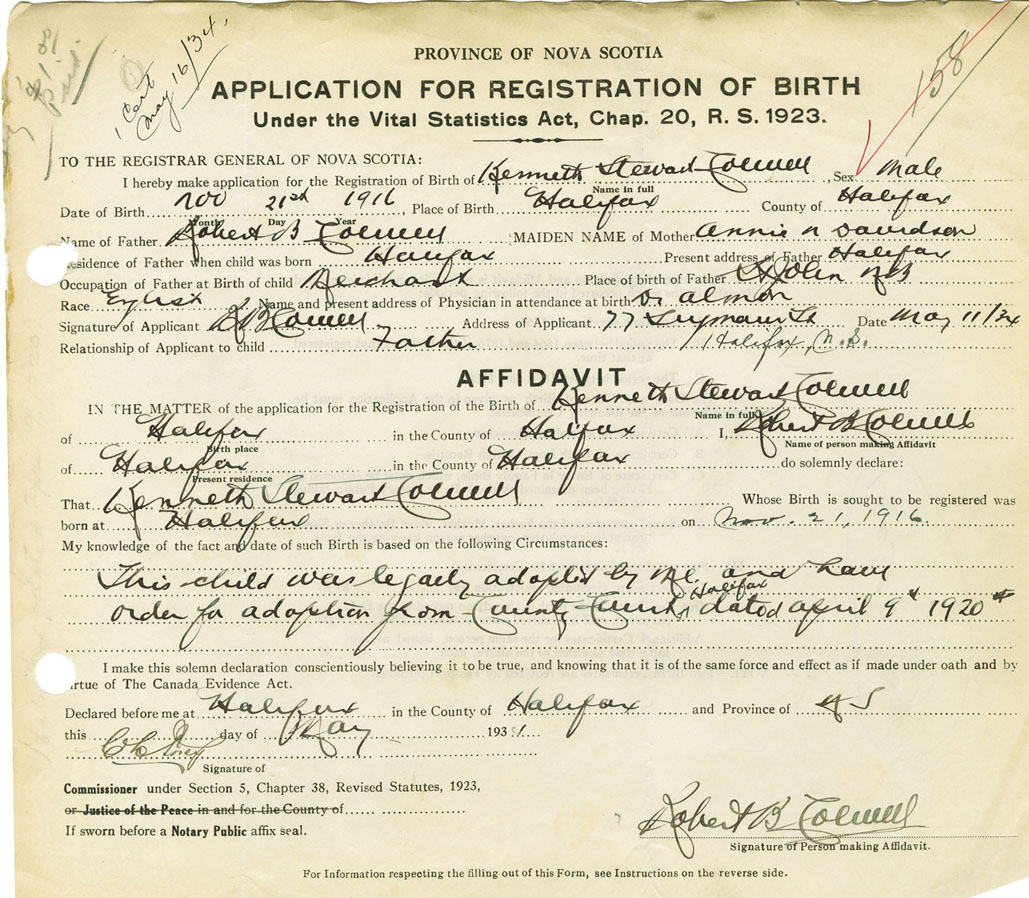 1 Cert
May 16/34.
158
PROVINCE OF NOVA SCOTIA
APPLICATION FOR REGISTRATION OF BIRTH
Under the Vital Statistics Act, Chap. 20, R. S. 1923.
TO THE REGISTRAR GENERAL OF NOVA SCOTIA:
I hereby make application for the Registration of Birth of Kenneth Stewart Colwell, Sex Male
Name in full
Date of Birth Nov 21st 1916, Place of Birth Halifax County of Halifax
Month Day Year
Name of Father Robert B Colwell MAIDEN NAME of Mother Annie N Davidson
Residence of Father when child was born Halifax Present address of Father Halifax
Occupation of Father at Birth of child Merchant Place of birth of Father St John NB
Race English Name and present address of Physician in attendance at birth Dr Almon
Signature of Applicant R B Colwell Address of Applicant 77 Seymour St Date May 11/34
Relationship of Applicant to child Father Halifax, N.S.
AFFIDAVIT
IN THE MATTER of the application for the Registration of the Birth of Kenneth Stewart Colwell
Name in full
of Halifax in the County of Halifax I, Robert B Colwell
Birth place Name of person making Affidavit
of Halifax in the County of Halifax do solemnly declare:
Present residence
That Kenneth Stewart Colwell Whose Birth is sought to be registered was
born at Halifax on Nov. 21, 1916.
My knowledge of the fact and date of such Birth is based on the following Circumstances:
This child was legally adopted by me and have
Halifax
order for adoption from County Court, dated April 9th 1920
I make this solemn declaration conscientiously believing it to be true, and knowing that it is of the same force and effect as if made under oath and by
virtue of The Canada Evidence Act.
Declared before me at Halifax in the County of Halifax and Province of N S
this day of May 193
Signature of
Commissioner under Section 5, Chapter 38, Revised Statutes, 1923,
or Justice of the Peace in and for the County of
If sworn before a Notary Public affix seal.
Robert B Colwell
Signature of Person making Affidavit.
For Information respecting the filling out of this Form, see Instructions on the reverse side.